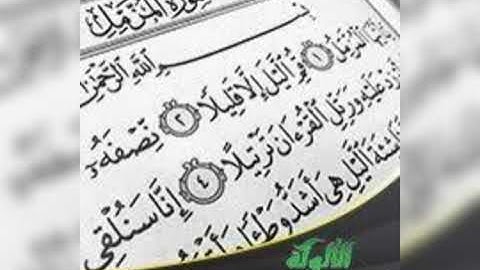 سُورَةُ الْمُزَّمِّلِ
بِسْمِ اللَّهِ الرَّحْمَٰنِ
يُّهَا الْمُزَّمِّلُ ١ قُمِ الَّيْلَ إِلَّا قَلِيلًا ٢ نِّصْفَهُ
زِدْ عَلَيْهِ وَرَتِّلِ الْقُرْءَانَ تَرْتِيلًا ٤ إِنَّا سَنُلْقِي
نَاشِئَةَ الَّيْلِ هِيَ أَشَدُّ وَطْئًا
الألوكة